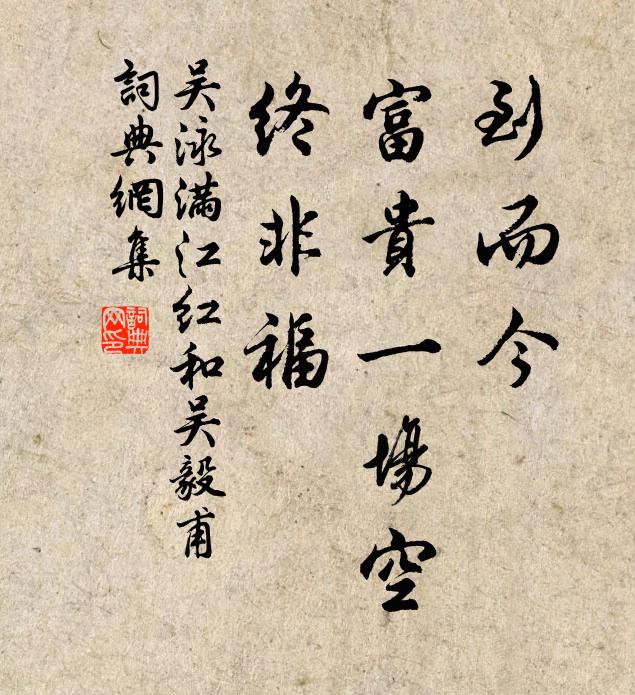 到而今
富貴一場空
終非福
吴泳满江红和吴毅甫
詞典網集
詞典
网印